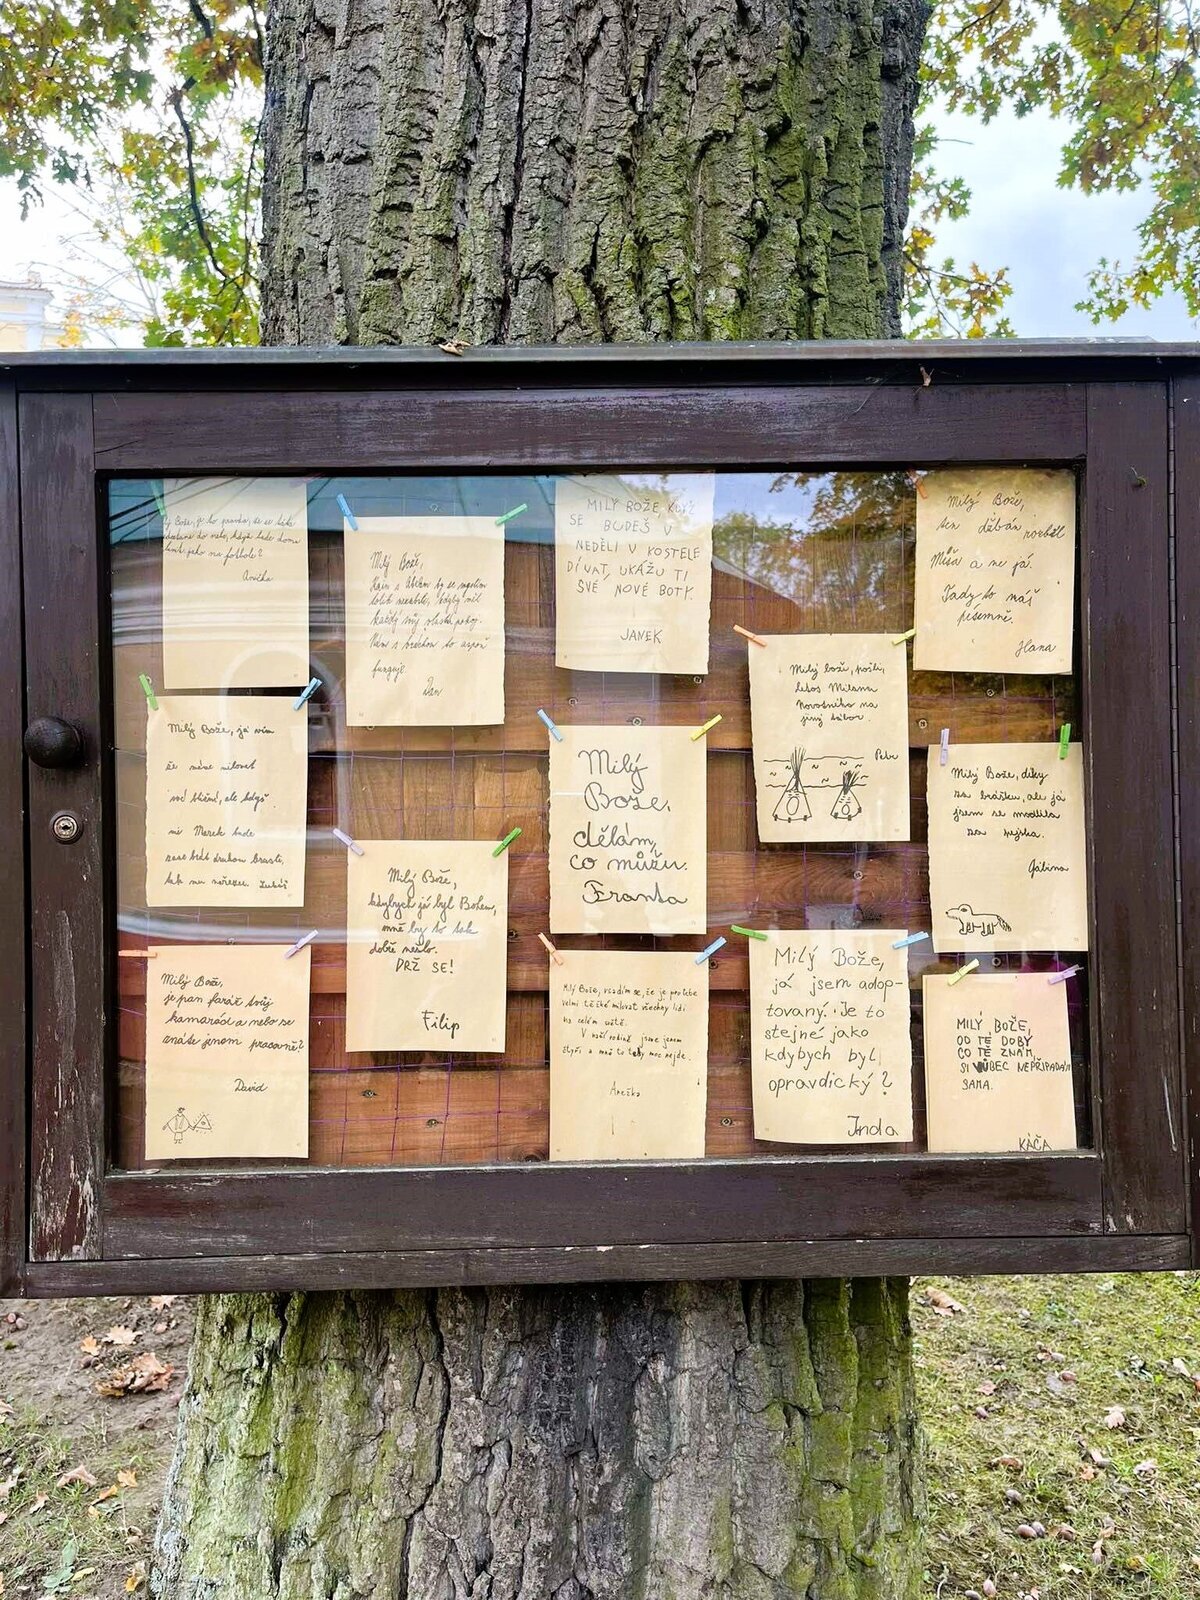 Bože, je to pravda, že se
do nebe, když bude doma
jako na fotbale?
Anička
Milý Bože,
Kain s Ábelem by se
tolik nezabili, kdyby měl
každý svůj vlastní pokoj.
Nám s bráchou to aspoň
funguje
Dan
MILÝ BOŽE, KDYŽ
SE BUDEŠ V
NEDĚLI V KOSTELE
DÍVAT, UKÁŽU TI
SVÉ NOVÉ BOTY.
JANEK
Milý Bože,
ten džbán rozbil
Míša a ne já.
Tady to máš
písemně.
Hana
Milý bože, pošli
letos Milana
Novotného na
jiný tábor.
Petr
Milý Bože, já vím
že máme milovat
své bližní, ale když
mi Marek bude
zase brát druhou brusli,
tak mu nařežu. Lukáš
Milý
Bože,
dělám,
co můžu.
Franta
Milý Bože, díky
za brášku, ale já
jsem se modlila
za pejska.
Gábina
Milý Bože,
kdybych já byl Bohem,
mně by to tak
dobře nešlo.
DRŽ SE!
Filip
Milý Bože,
je pan farář tvůj
kamarád a nebo se
znáte jenom pracovně?
David
Milý Bože, vsadím se, že je pro tebe
velmi těžké milovat všechny lidi
na celém světě.
V naší rodině jsme jenom
čtyři a mně to tedy moc nejde.
Anežka
Milý Bože,
já jsem adop-
tovaný. Je to
stejné jako
kdybych byl
opravdický?
Jnda
MILÝ BOŽE,
OD TÉ DOBY
CO TĚ ZNÁM,
SI VŮBEC NEPŘIPADÁM
SAMA.
KÁČA